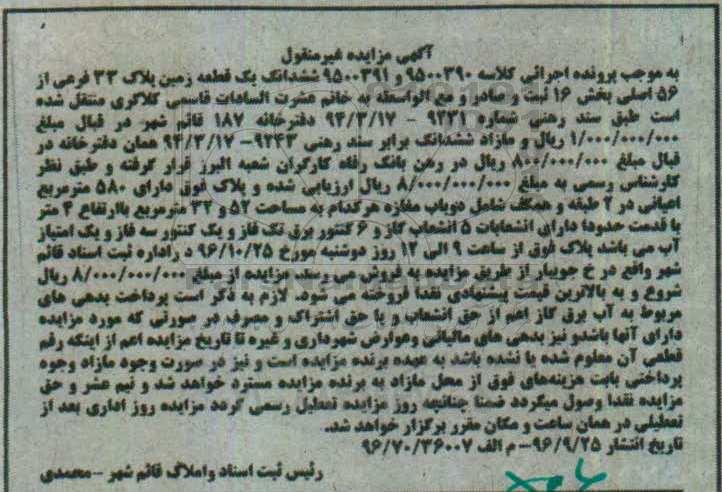 آگهی مزایده غیرمنقول
به موجب پرونده اجرائی کلاسه ۹۵۰۰۳۹۰ و ۹۵۰۰۳۹۱ ششدانگ یک قطعه زمین پلاک ۳۳ فرعی از
۵۶ اصلی بخش ۱۶ ثبت و صادر و مع الواسطه به خانم عشرت السادات قاسمی کلاگری منتقل شده
است طبق سند رهنی شماره ۹۲۳۱ – ۹۴/۳/۱۷ دفترخانه ۱۸۷ قائم شهر در قبال مبلغ
۱/۰۰۰/۰۰۰/۰۰۰ ریال و مازاد ششدانگ برابر سند رهنی ۹۲۴۳– ۹۴/۳/۱۷ همان دفترخانه در
قبال مبلغ ۸۰۰/۰۰۰/۰۰۰ ریال در رهن بانک رفاه کارگران شعبه البرز قرار گرفته و طبق نظر
کارشناس رسمی به مبلغ ۸/۰۰۰/۰۰۰/۰۰۰ ریال ارزیابی شده و پلاک فوق دارای ۵۸۰ مترمربع
اعیانی در ۲ طبقه و همکف شامل دوباب مغازه هرکدام به مساحت ۵۲ و ۳۲ مترمربع باارتفاع ۴ متر
با قدمت حدودا دارای انشعابات ۵ انشعاب گاز و ۶ کنتور برق تک فاز و یک کنتور سه فاز و یک امتیاز
آب می باشد پلاک فوق از ساعت ۹ الی ۱۲ روز دوشنبه مورخ ۹۶/۱۰/۲۵ د راداره ثبت اسناد قائم
شهر واقع در خ جویبار از طریق مزایده به فروش می رسد. مزایده از مبلغ ۸/۰۰۰/۰۰۰/۰۰۰ ریال
شروع و به بالاترین قیمت پیشنهادی نقدا فروخته می شود. لازم به ذکر است پرداخت بدهی های
مربوط به آب برق گاز اعم از حق انشعاب و یا حق اشتراک و مصرف در صورتی که مورد مزایده
دارای آنها باشدو نیز بدهی های مالیاتی وعوارض شهرداری و غیره تا تاریخ مزایده اعم از اینکه رقم
قطعی آن معلوم شده یا نشده باشد به عهده برنده مزایده است و نیز در صورت وجود مازاد وجوه
پرداختی بابت هزینه‌های فوق از محل مازاد به برنده مزایده مسترد خواهد شد و نیم عشر و حق
مزایده نقدا وصول میگردد ضمنا چنانچه روز مزایده تعطیل رسمی گردد مزایده روز اداری بعد از
تعطیلی در همان ساعت و مکان مقرر برگزار خواهد شد.
تاریخ انتشار ۹۶/۹/۲۵– م الف ۹۶/۷۰/۳۶۰۰۷
رئیس ثبت اسناد واملاک قائم شهر –محمدی